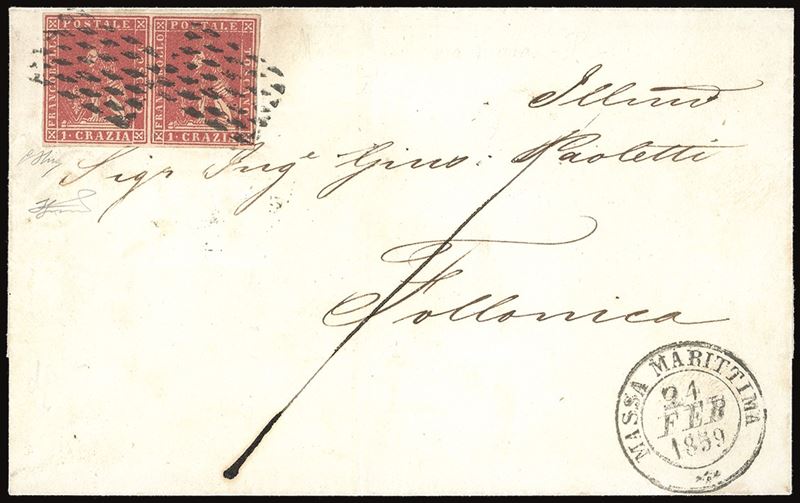 FRANCOBOLLO POSTALE TOSCANO 1·CRAZIA
FRANCOBOLLO POSTALE TOSCANO 1·CRAZIA
Sigr Inge Gino Paoletti
Follonica
MASSA MARITTIMA
24
FEB
1859